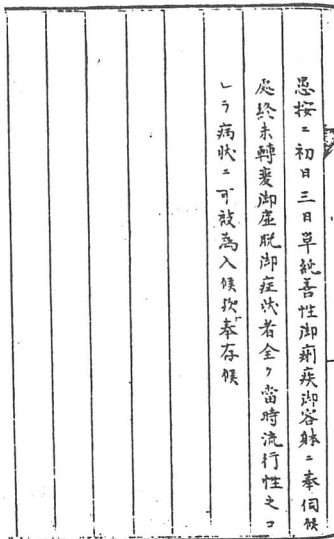 愚按ニ初日三日単純善性御痢疾御容躰ニ奉伺候
処終末轉変御虚脱御症状者全ク當時流行性之コ
レラ病状ニ可被為入候歟奉存候